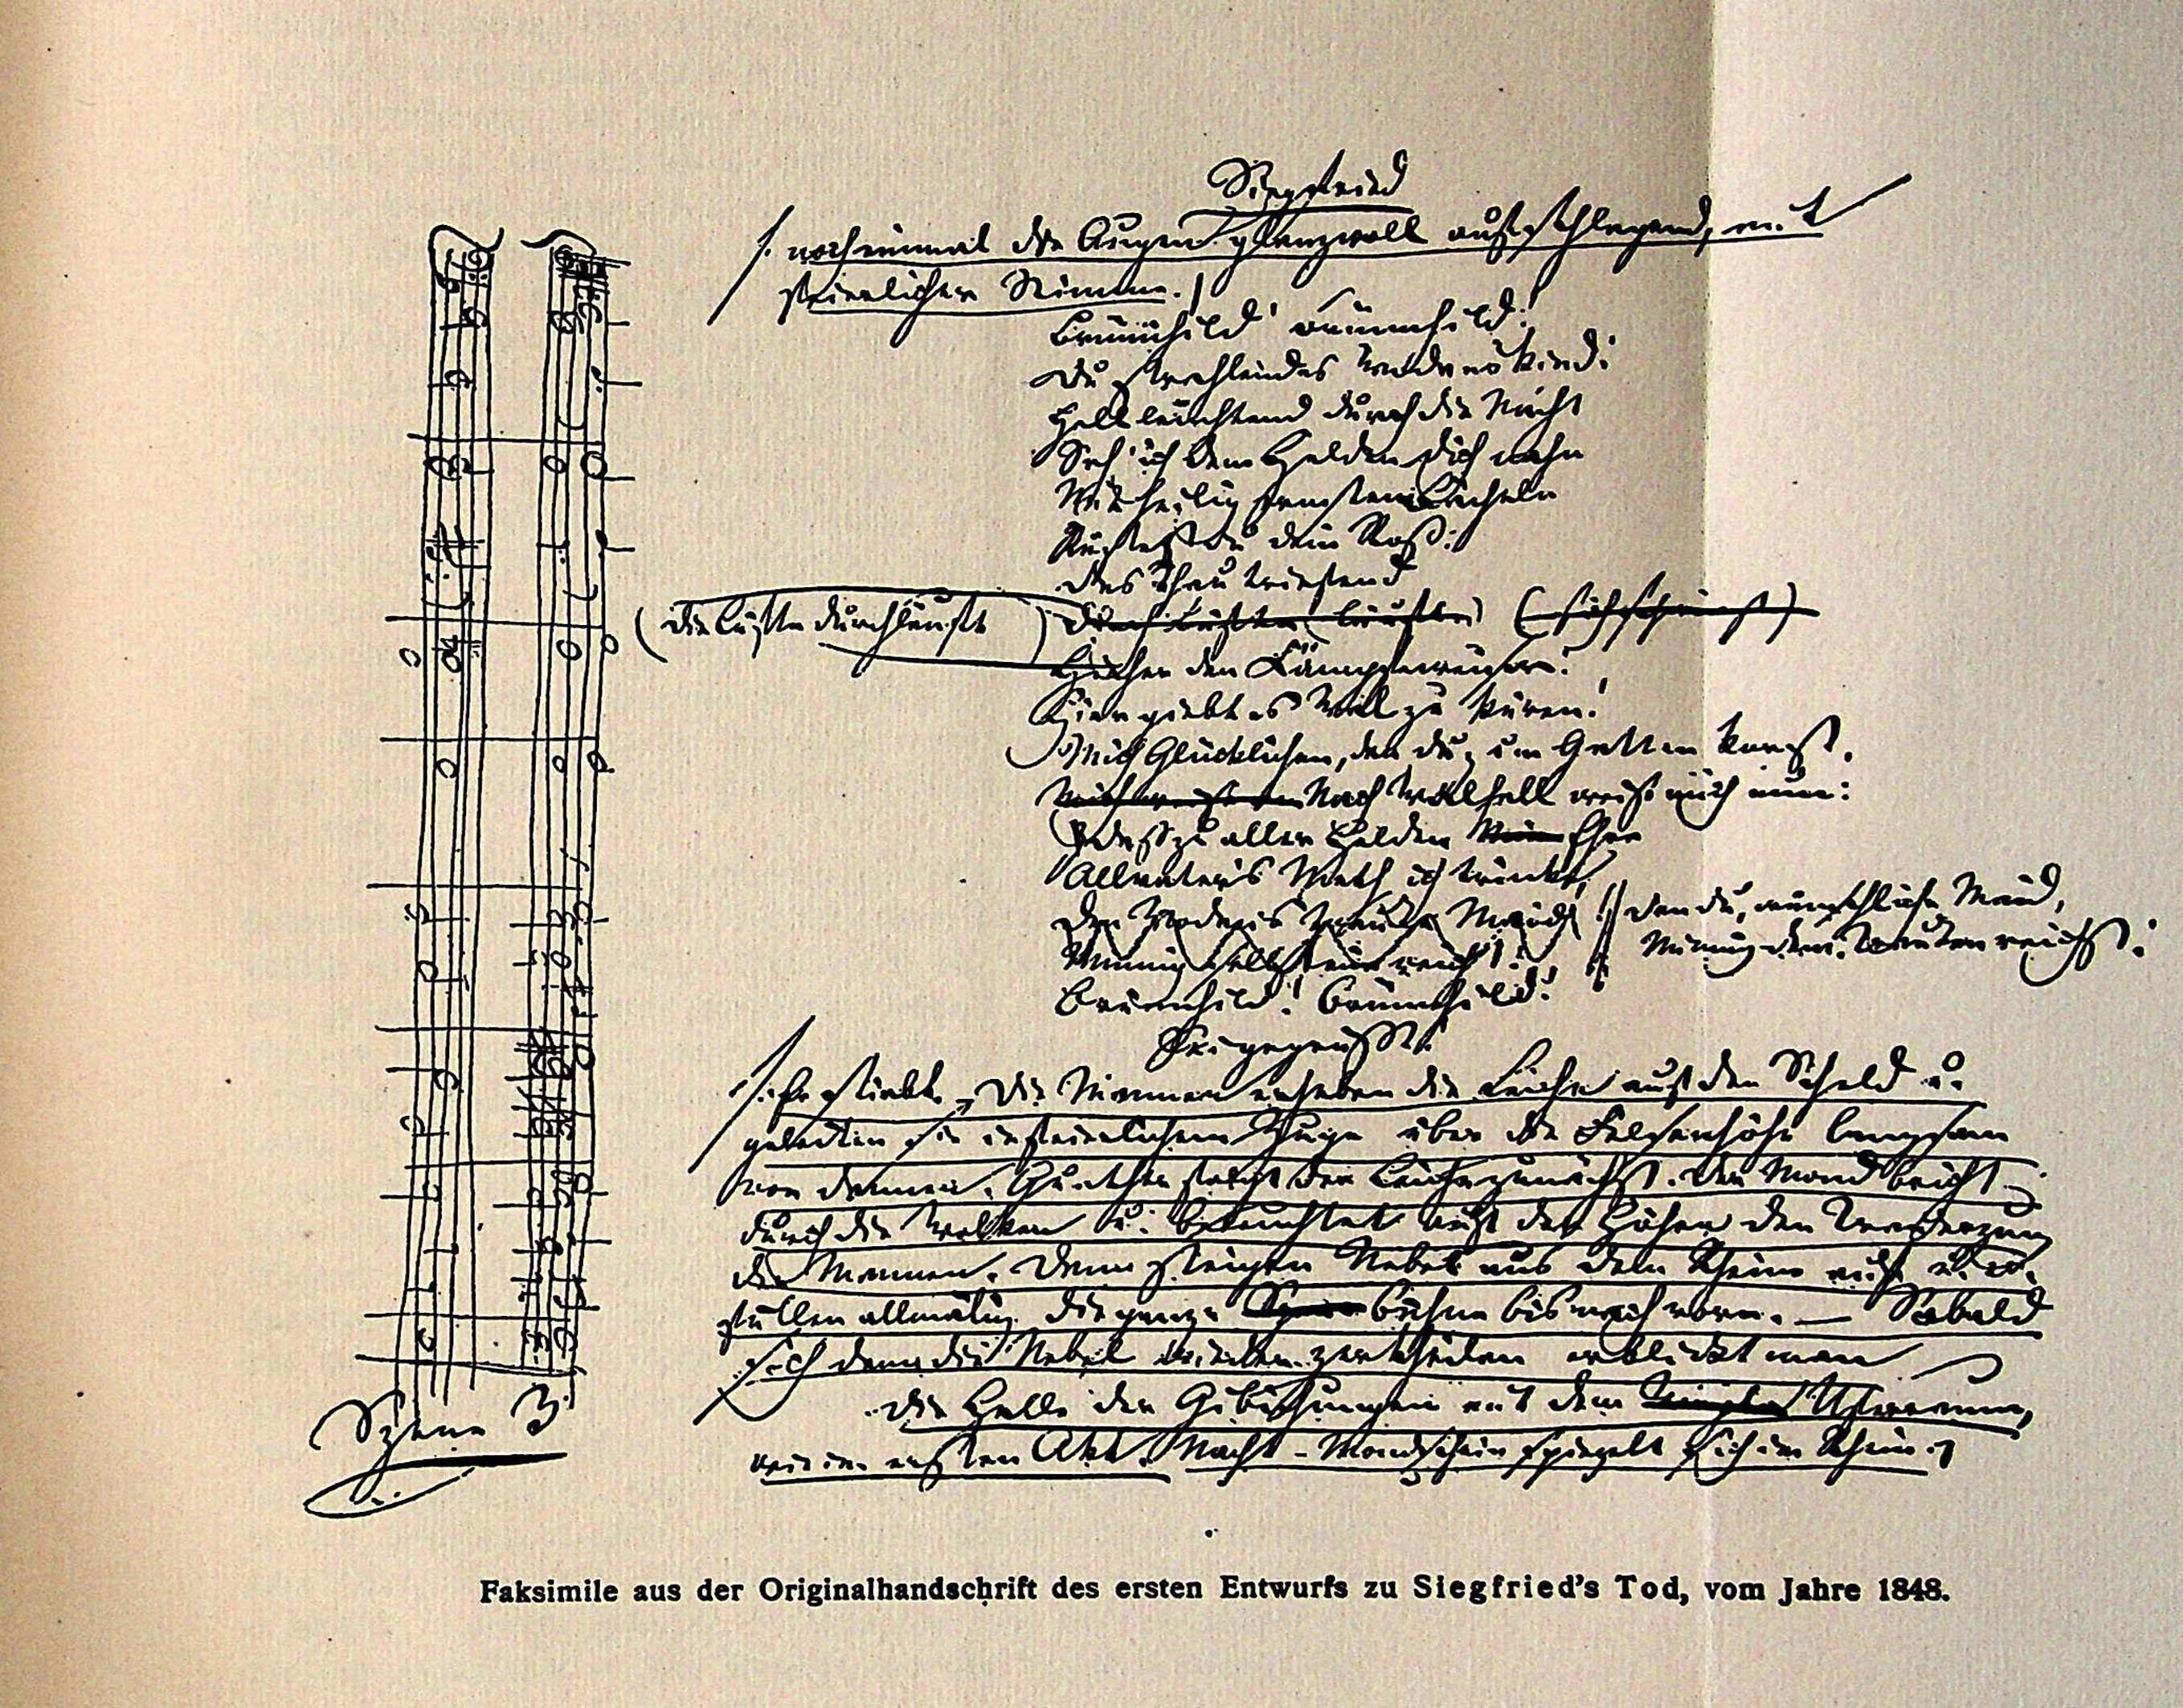 Siegfried
(noch einmal die Augen glanzvoll aufschlagend, mit
feierlicher Stimme.)
Brünnhild! Brünnhild!
Du strahlendes Wodanskind!
Hell leuchtend durch die Nacht
Seh' ich dem Helden dich nahn
Mit heilig ernstem Lächeln
Rüstest du dein Roß:
das Thau triefend
(die Lüfte durchläuft)
Hieher den Kampfesweiser!
Hier giebt es Wal zu küren!
Mich Glücklichen, den du zum Gatten korst,
Nach Walhall weis' mich nun:
daß zu aller Helden Ehre
Allvater's Meth ich trinke,
Den du, wünschliche Maid,
Minnig dem Trauten reichst:
Brünnhild! Brünnhild!
Sei gegrüßt!
(Er stirbt. Die Mannen erheben die Leiche auf den Schild u.
geleiten sie in feierlichem Zuge über die Felsenhöhe langsam
von dannen. Gunther folgt der Leiche zunächst. Der Mond bricht
durch die Wolken u. beleuchtet auf der Höhe den Trauerzug
der Mannen. Dann steigen Nebel aus dem Rheine auf u. er-
füllen allmälig die ganze Bühne bis nach vorn. — Sobald
sich dann die Nebel wieder zertheilen erblickt man
die Halle der Gibichungen mit dem Uferraum,
wie im ersten Akt. Nacht - Mondschein spiegelt sich im Rhein.)
Szene 3
Faksimile aus der Originalhandschrift des ersten Entwurfs zu Siegfried's Tod, vom Jahre 1848.